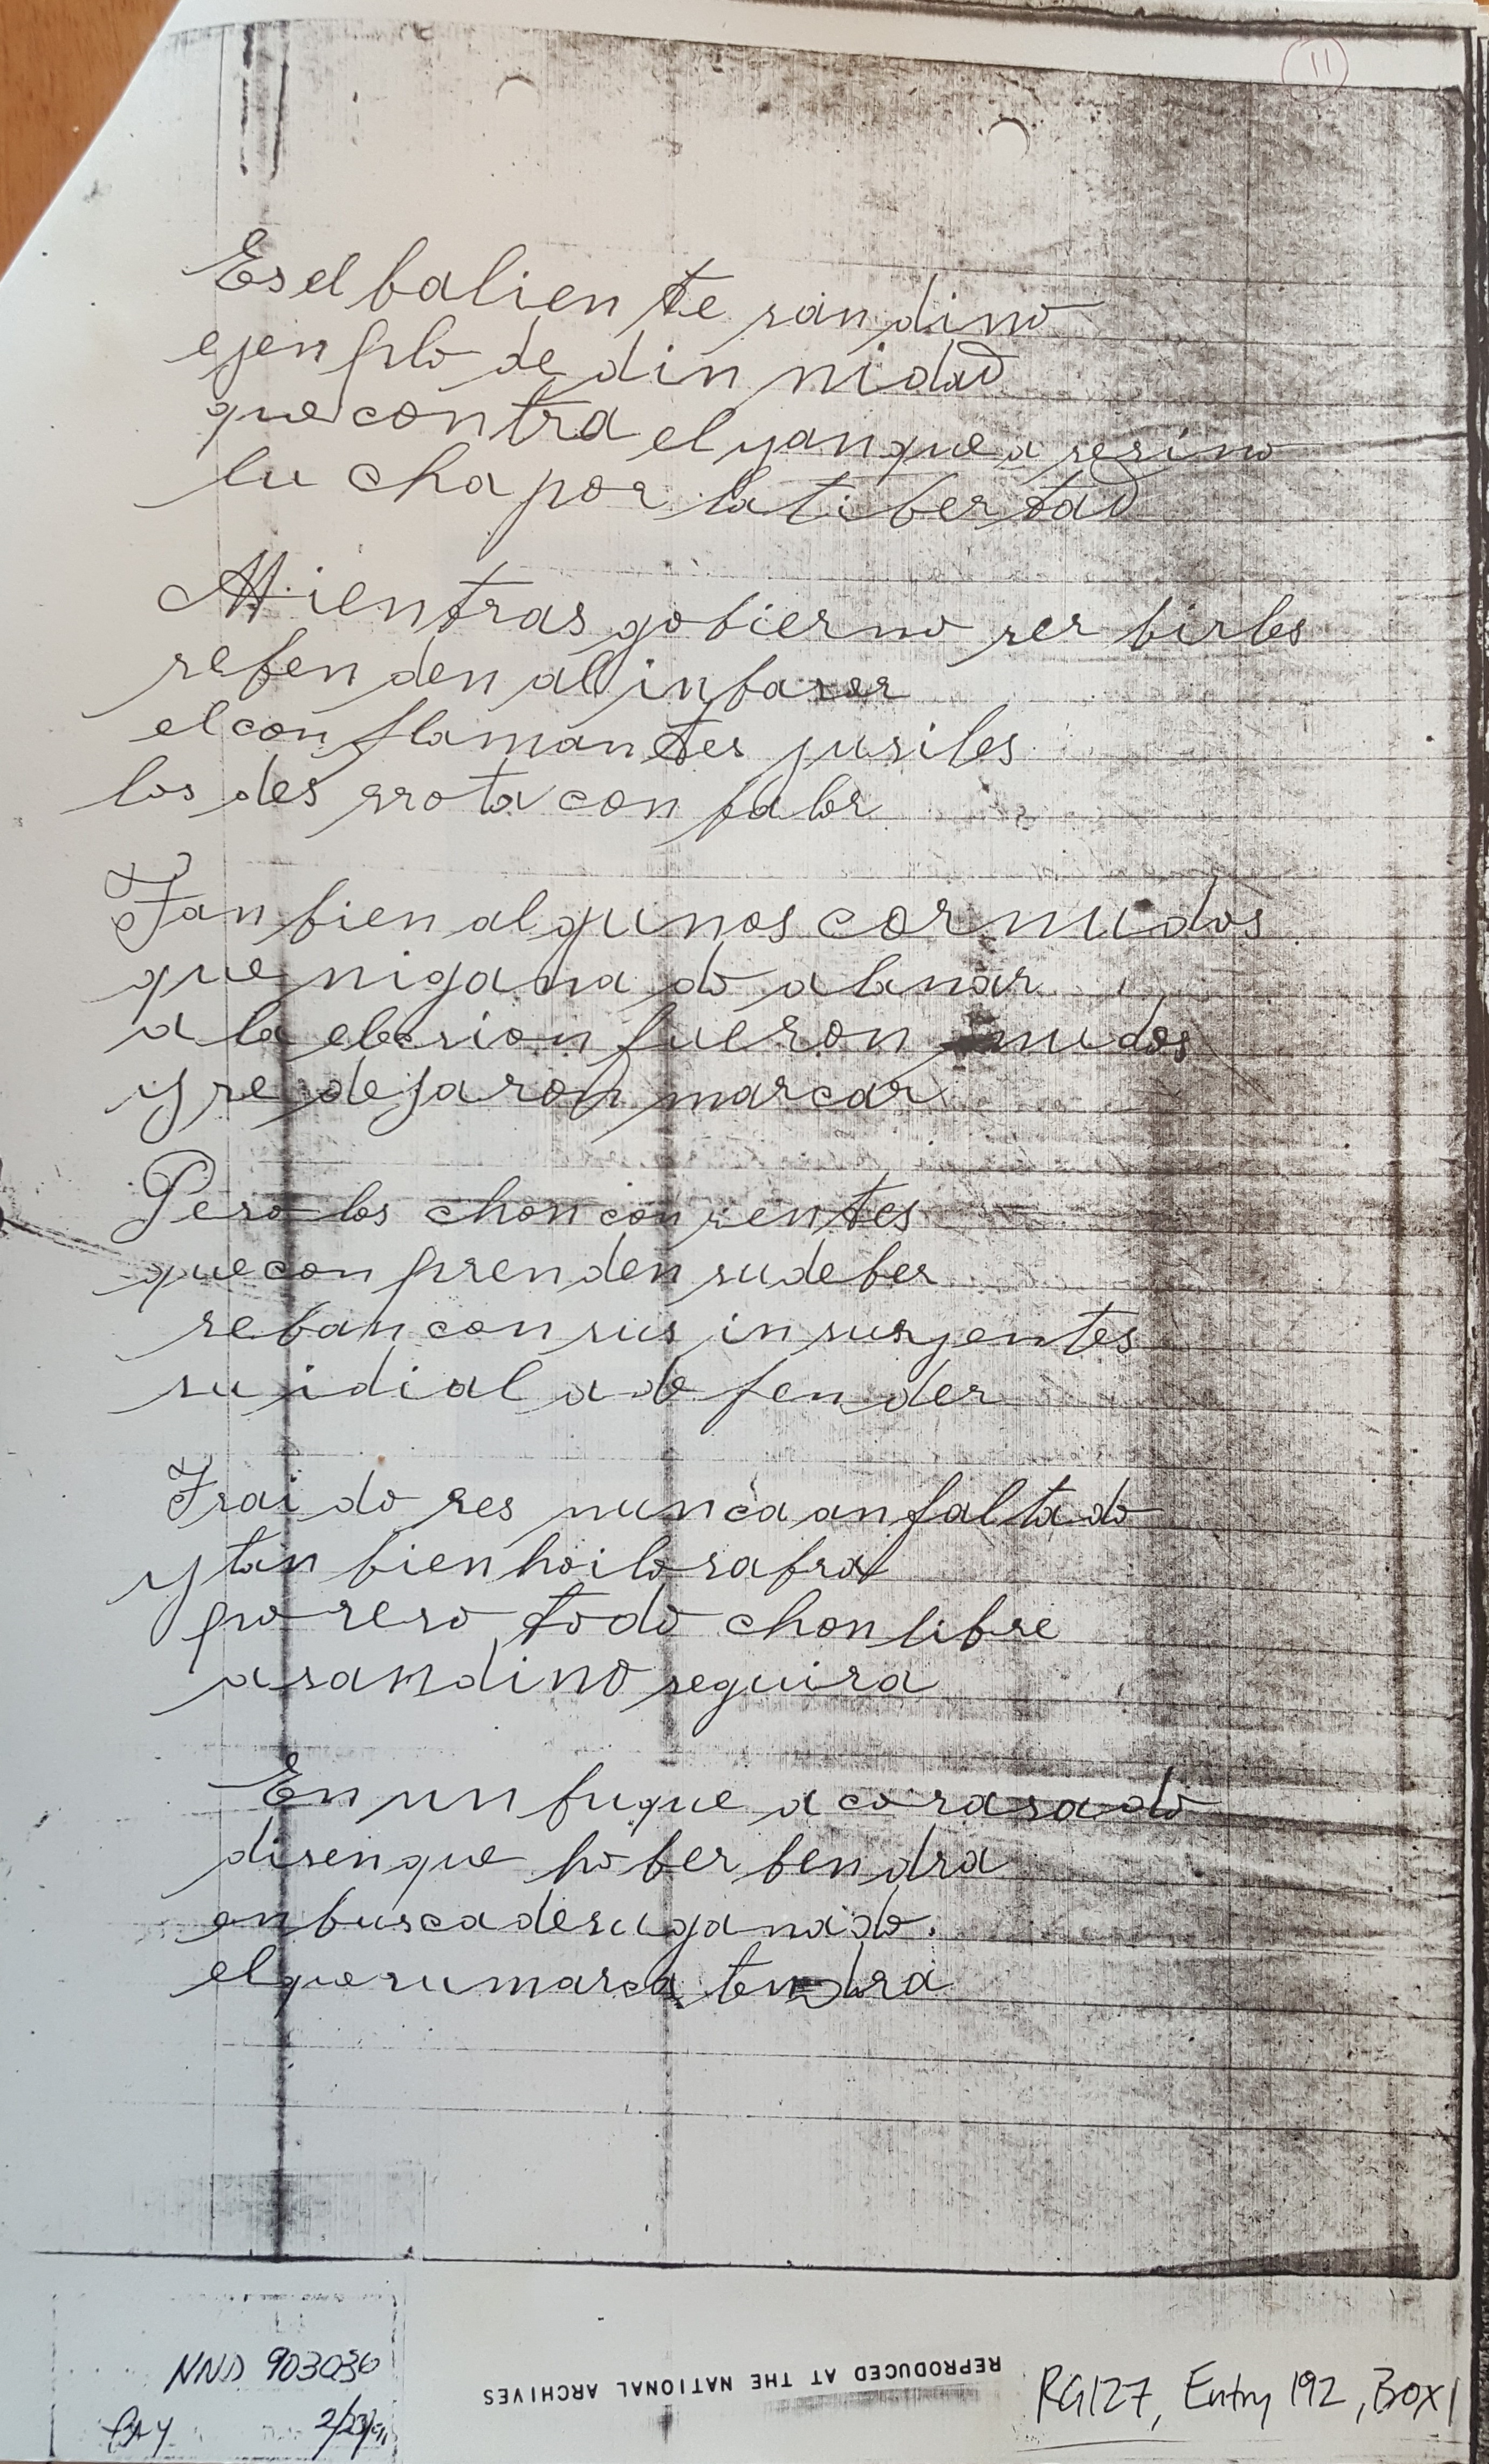 11
Es el baliente sandino
ejenplo de dinnidad
que contra el yanque asesino
lucha por la libertad
Mientras gobierno serbirles
sebenden al inbasor
el con flamantes jusiles
los desrrota con balor
Tanbien algunos cornudos
que nigana do alanar
a la elecsion fueron mudos
y se dejaron marcar
Pero los chon consientes
que conprenden su deber
seban con sus insurjentes
su idial a defender
Traidores nunca an faltado
y tanbien hoi lo sabra
por eso todo chon libre
a sandino seguira
En un buque acorasado
disen que hober bendra
en busca de su ganado.
el que su marca tendra
NND 903036
2/23/91
REPRODUCED AT THE NATIONAL ARCHIVES
RG127, Entry 192, Box 1